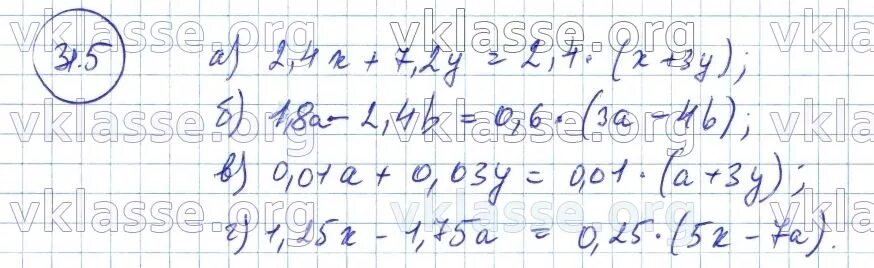 31.5 а) 2,4x + 7,2y = 2,4 · (x+3y);
б) 1,8a - 2,4b = 0,6 · (3a - 4b);
в) 0,01a + 0,03y = 0,01 · (a+3y);
г) 1,25x - 1,75a = 0,25 · (5x - 7a).
vklasse.org vklasse.org vklasse.org
vklasse.org vklasse.org vklasse.org
vklasse.org vklasse.org vklasse.org